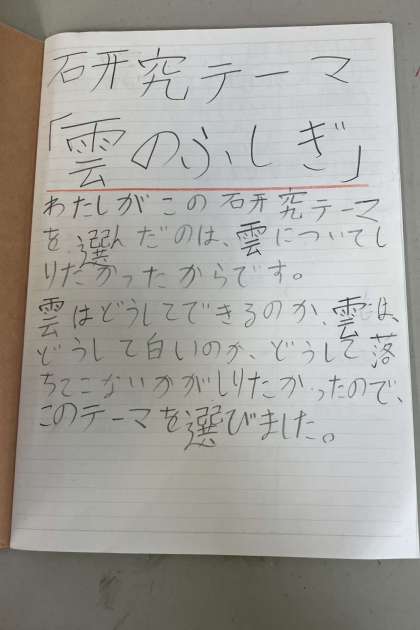 研究テーマ
「雲のふしぎ」
わたしがこの研究テーマ
を選んだのは、雲についてし
りたかったからです。
雲はどうしてできるのか、雲は、
どうして白いのか、どうして落
ちてこないかがしりたかったので、
このテーマを選びました。